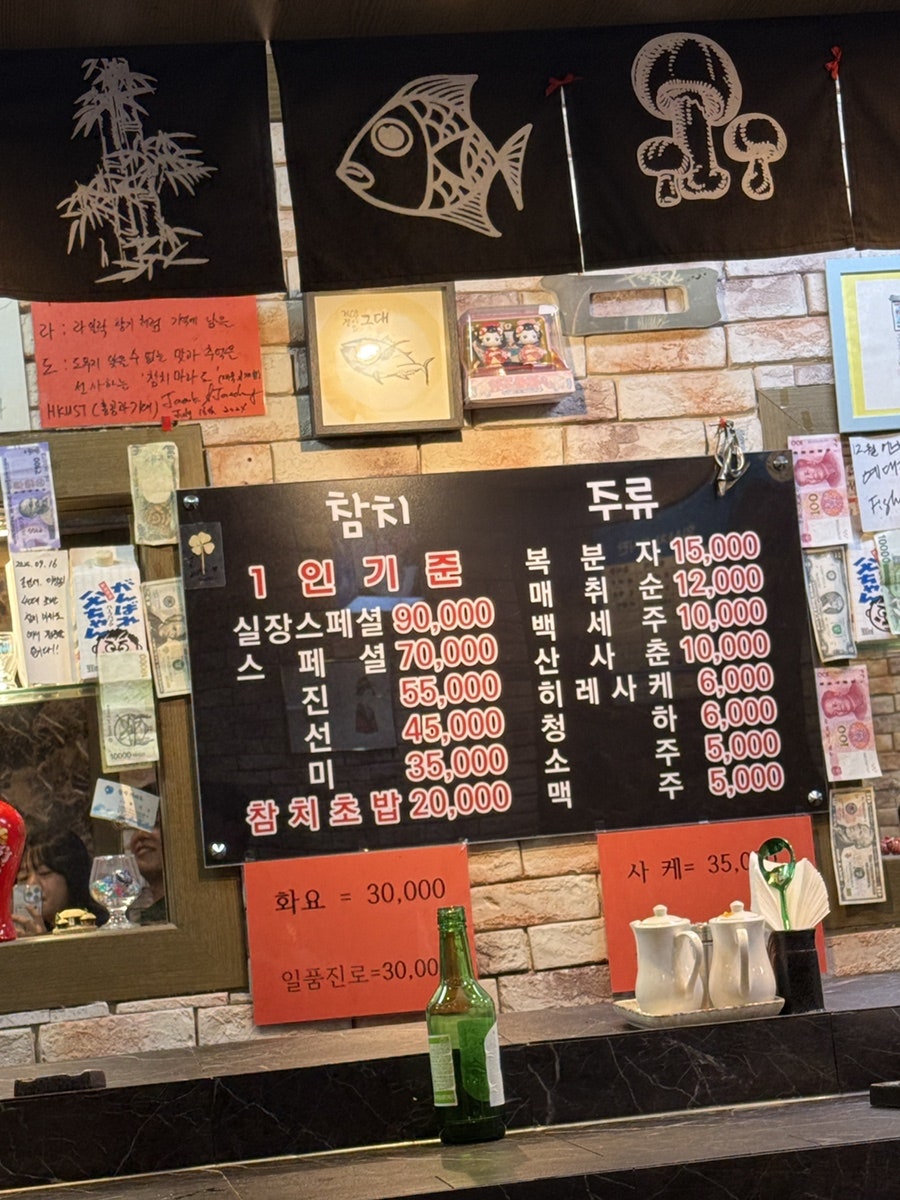 라 : 라일락 향기 처럼 기억에 남은
도 :
선사하는 '참치 마라도'
HKUST (홍콩과기대)
July 16th 2024
그대
참치
1인기준
실장스페셜 90,000
스페셜 70,000
진 55,000
선 45,000
미 35,000
참치초밥 20,000
주류
복분자 15,000
매취순 12,000
백세주 10,000
산사춘 10,000
히레사케 6,000
청하 6,000
소주 5,000
맥주 5,000
화요 = 30,000
일품진로=30,00
사케= 35,0
100
100
10000